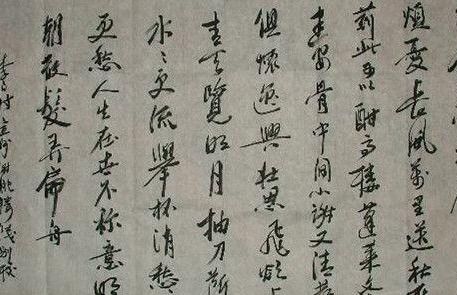 煩憂長風萬里送秋
此可以酣高樓蓬萊文
建安骨中间小谢又清發
俱懷逸興壯思飛欲
青天覽明月抽刀斷
水水更流舉杯消愁
更愁人生在世不称意明
朝散髮弄扁舟
李白诗宣州谢朓楼饯别校